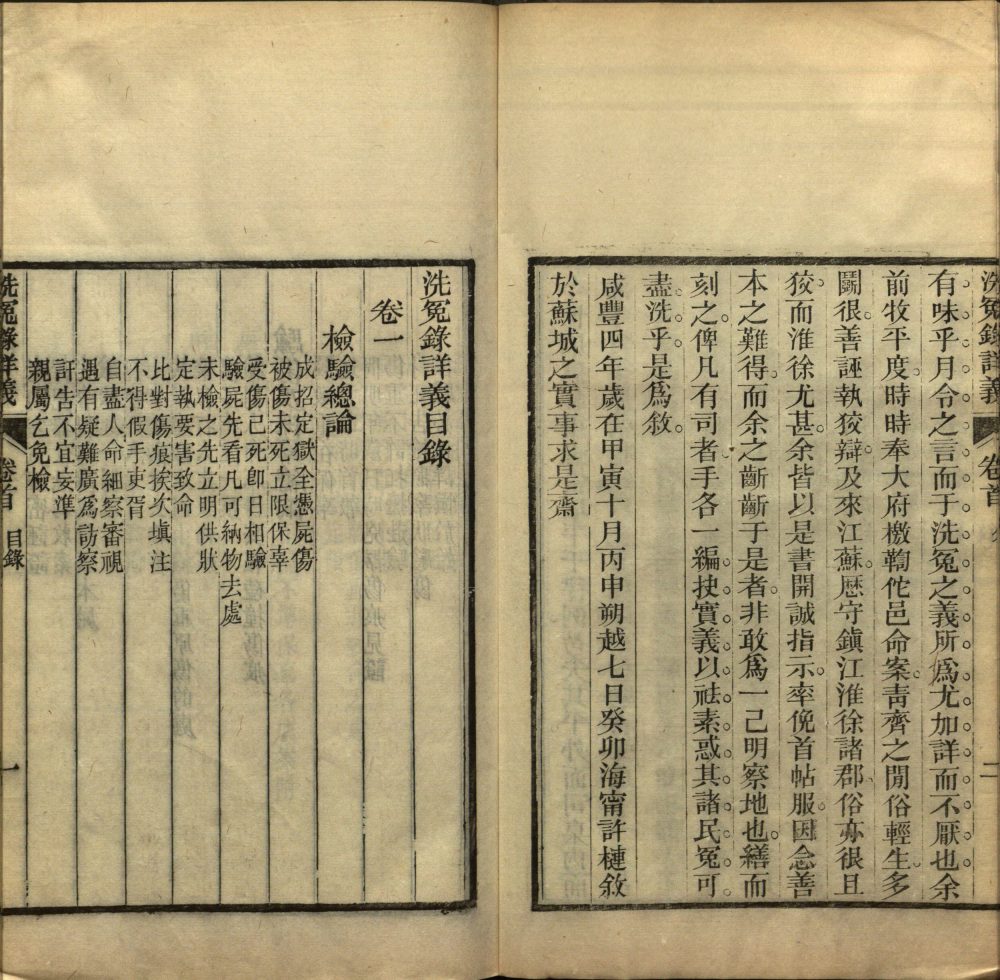 洗冤錄詳義 卷首 二
有味乎月令之言而于洗冤之義所爲尤加詳而不厭也余
前牧平度時時奉大府檄鞫佗邑命案靑齊之閒俗輕生多
鬭很善誣執狡辯及來江蘇歷守鎭江淮徐諸郡俗亦很且
狡而淮徐尤甚余皆以是書開誠指示率俛首帖服因念善
本之難得而余之齗齗于是者非敢爲一己明察地也繕而
刻之俾凡有司者手各一編抰實義以祛素惑其諸民冤可
盡洗乎是爲敘
咸豐四年歲在甲寅十月丙申朔越七日癸卯海甯許槤敘
於蘇城之實事求是齋
洗冤錄詳義目錄
卷一
檢驗總論
成招定獄全憑屍傷
被傷未死立限保辜
受傷已死卽日相驗
驗屍先看凡可納物去處
未檢之先立明供狀
定執要害致命
比對傷痕挨次塡注
不得假手吏胥
自盡人命細察審視
遇有疑難廣爲訪察
訐告不宜妄準
親屬乞免檢
洗冤錄詳義 卷首 目錄 一